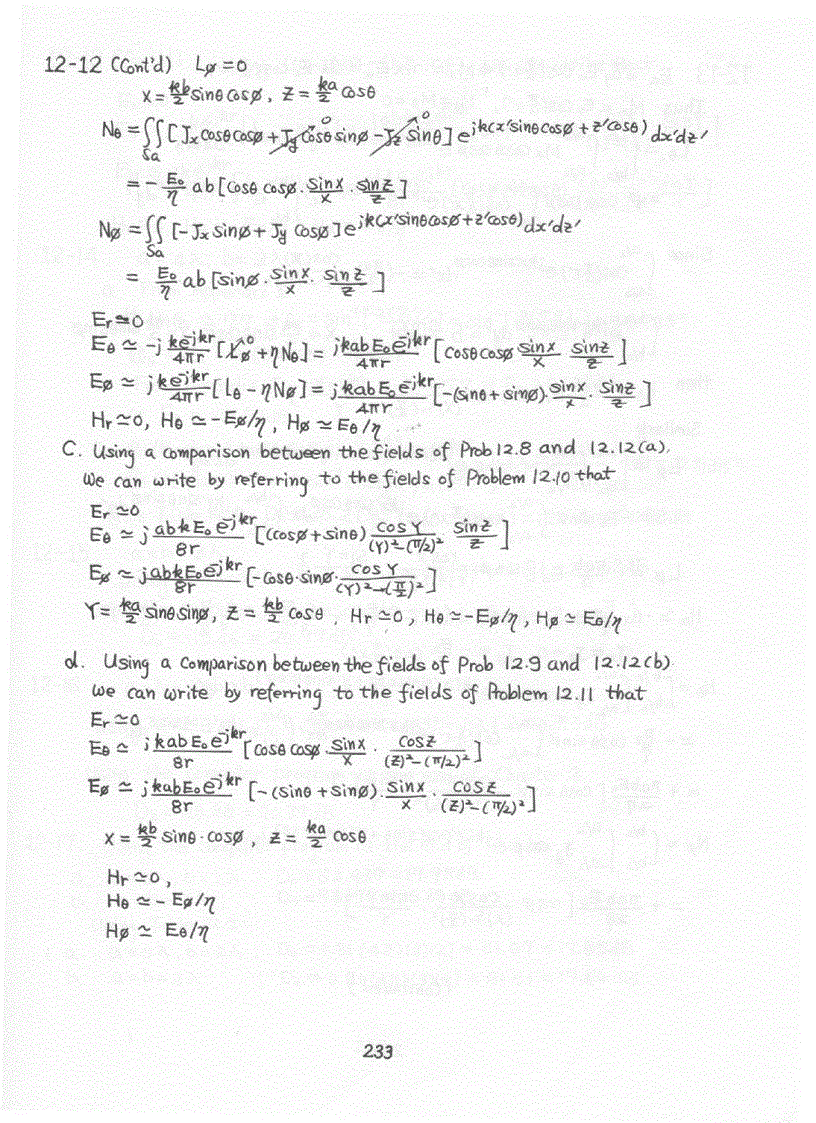 12-12 (Cont'd) Lø = 0
X = kb/2 sinθ cosø, Z = ka/2 cosθ
Nθ = ∬Sa [Jx cosθ cosø + Jy cosθ sinø (→0) − Jz sinθ (→0)] e^{jk(x'sinθcosø + z'cosθ)} dx'dz'
= − E₀/η ab [cosθ cosø · sin X/X · sin Z/Z]
Nø = ∬Sa [−Jx sinø + Jy cosø] e^{jk(x'sinθcosø+z'cosθ)} dx'dz'
= E₀/η ab [sinø · sin X/X · sin Z/Z]
Er ≃ 0
Eθ ≃ −j ke^{-jkr}/4πr [Lø (→0) + ηNθ] = jkabE₀e^{-jkr}/4πr [cosθ cosø sin X/X sin Z/Z]
Eø ≃ jke^{-jkr}/4πr [Lθ − ηNø] = jkabE₀e^{-jkr}/4πr [−(sinθ + sinø) · sin X/X · sin Z/Z]
Hr ≃ 0, Hθ ≃ −Eø/η, Hø ≃ Eθ/η
C. Using a comparison between the fields of Prob 12.8 and 12.12(a),
We can write by referring to the fields of Problem 12.10 that
Er ≃ 0
Eθ ≃ j abkE₀e^{-jkr}/8r [(cosø + sinθ) cos Y/((Y)²−(π/2)²) sin Z/Z]
Eø ≃ j abkE₀e^{-jkr}/8r [−cosθ · sinø · cos Y/((Y)²−(π/2)²)]
Y = ka/2 sinθ sinø, Z = kb/2 cosθ, Hr ≃ 0, Hθ ≃ −Eø/η, Hø ≃ Eθ/η
d. Using a comparison between the fields of Prob 12.9 and 12.12(b)
We can write by referring to the fields of Problem 12.11 that
Er ≃ 0
Eθ ≃ jkabE₀e^{-jkr}/8r [cosθ cosø · sin X/X · cos Z/((Z)²−(π/2)²)]
Eø ≃ jkabE₀e^{-jkr}/8r [−(sinθ + sinø) · sin X/X · cos Z/((Z)²−(π/2)²)]
X = kb/2 sinθ · cosø, Z = ka/2 cosθ
Hr ≃ 0,
Hθ ≃ −Eø/η
Hø ≃ Eθ/η
233